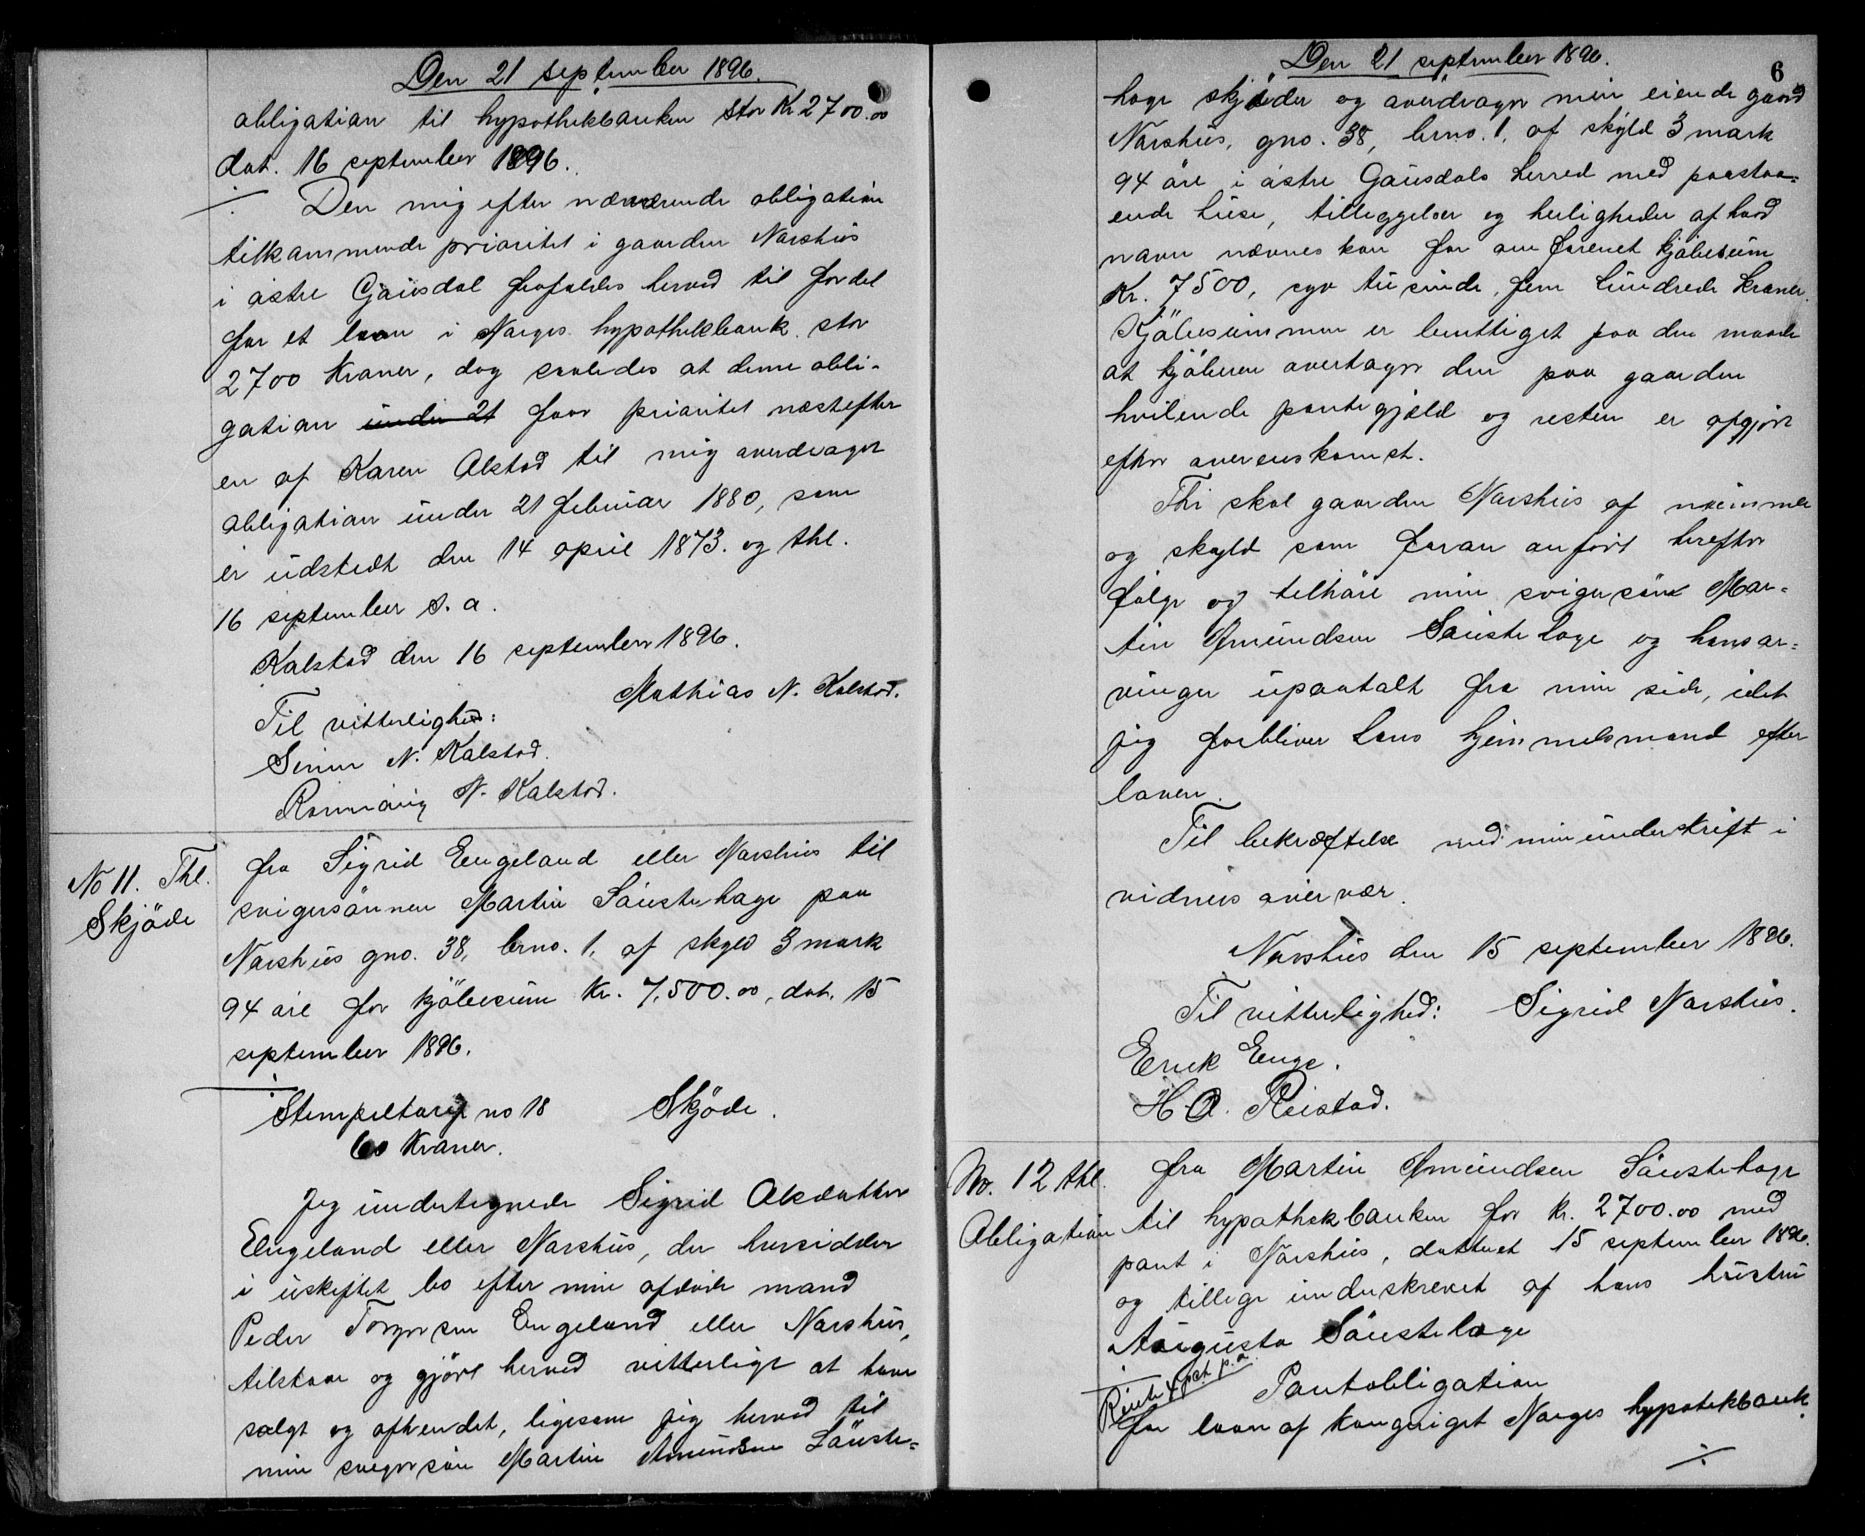 Den 21 september 1896.
obligation til hypothekbanken stor Kr 2700.00
dat. 16 september 1896.
Den mig efter nærværende obligation
tilkommende prioritet i gaarden Narshus
i østre Gausdal frafaldes herved til fordel
for et laan i Norges hypothekbank stor
2700 Kroner, dog saaledes at denne obli-
gation under 21 faar prioritet næstefter
en af Karen Alstad til mig overdragen
obligation under 21 februar 1880, som
er udstedt den 14 april 1873. og thl.
16 september s. a.
Kalstad den 16 september 1896.
Mathias N. Kalstad.
Til vitterlighed:
Simen N. Kalstad.
N. Kalstad.
No 11. Thl.
Skjöde
fra Sigrid Engeland eller Narshus til
svigersønnen Martin Säustehage paa
Narshus gno. 38, brno. 1, af skyld 3 mark
94 øre for kjöbesum Kr. 7,500.00, dat. 15
september 1896.
Stempeltarif no 18 Skjöde.
60 Kroner.
Jeg undertegnede Sigrid Olsdatter
Engeland eller Narshus, der hensidder
i uskiftet bo efter min afdøde mand
Peder Torgersen Engeland eller Narshus,
tilstaar og gjört herved vitterligt at have
solgt og afhendet, ligesom jeg herved til
min svigersøn Martin Amundsen Säuste-
Den 21 september 1896.
6
hage skjøder og overdrager min eiende gaard
Narshus, gno. 38, brno. 1, af skyld 3 mark
94 øre i østre Gausdals herred med paastaa-
ende huse, tilleggelser og herligheder af hvad
navn nævnes kan for en forenet kjöbesum
Kr. 7500, syv tusinde, fem hundrede kroner.
Kjöbesummen er berigtiget paa den maade
at kjöberen overtager den paa gaarden
hvilende pantegjæld og resten er opgjort
efter overenskomst.
Thi skal gaarden Narshus af nummer
og skyld som foran anført herefter
følge og tilhøre min svigersøn Mar-
tin Amundsen Säustehage og hans ar-
vinger upaatalt fra min side, idet
jeg forbliver hans hjemmelsmand efter
loven.
Til bekræftelse med min underskrift i
vidners overvær.
Narshus den 15 september 1896.
Til vitterlighed: Sigrid Narshus.
Erik Enge.
H. O. Reistad.
No. 12 thl.
Obligation
fra Martin Amundsen Säustehage
til hypothekbanken for Kr. 2700.00 med
pant i Narshus, dateret 15 september 1896.
og tillige underskrevet af hans hustru
Augusta Säustehage
Rente 4 pct. p. a.
Pantobligation
for laan af kongeriget Norges hypotekbank